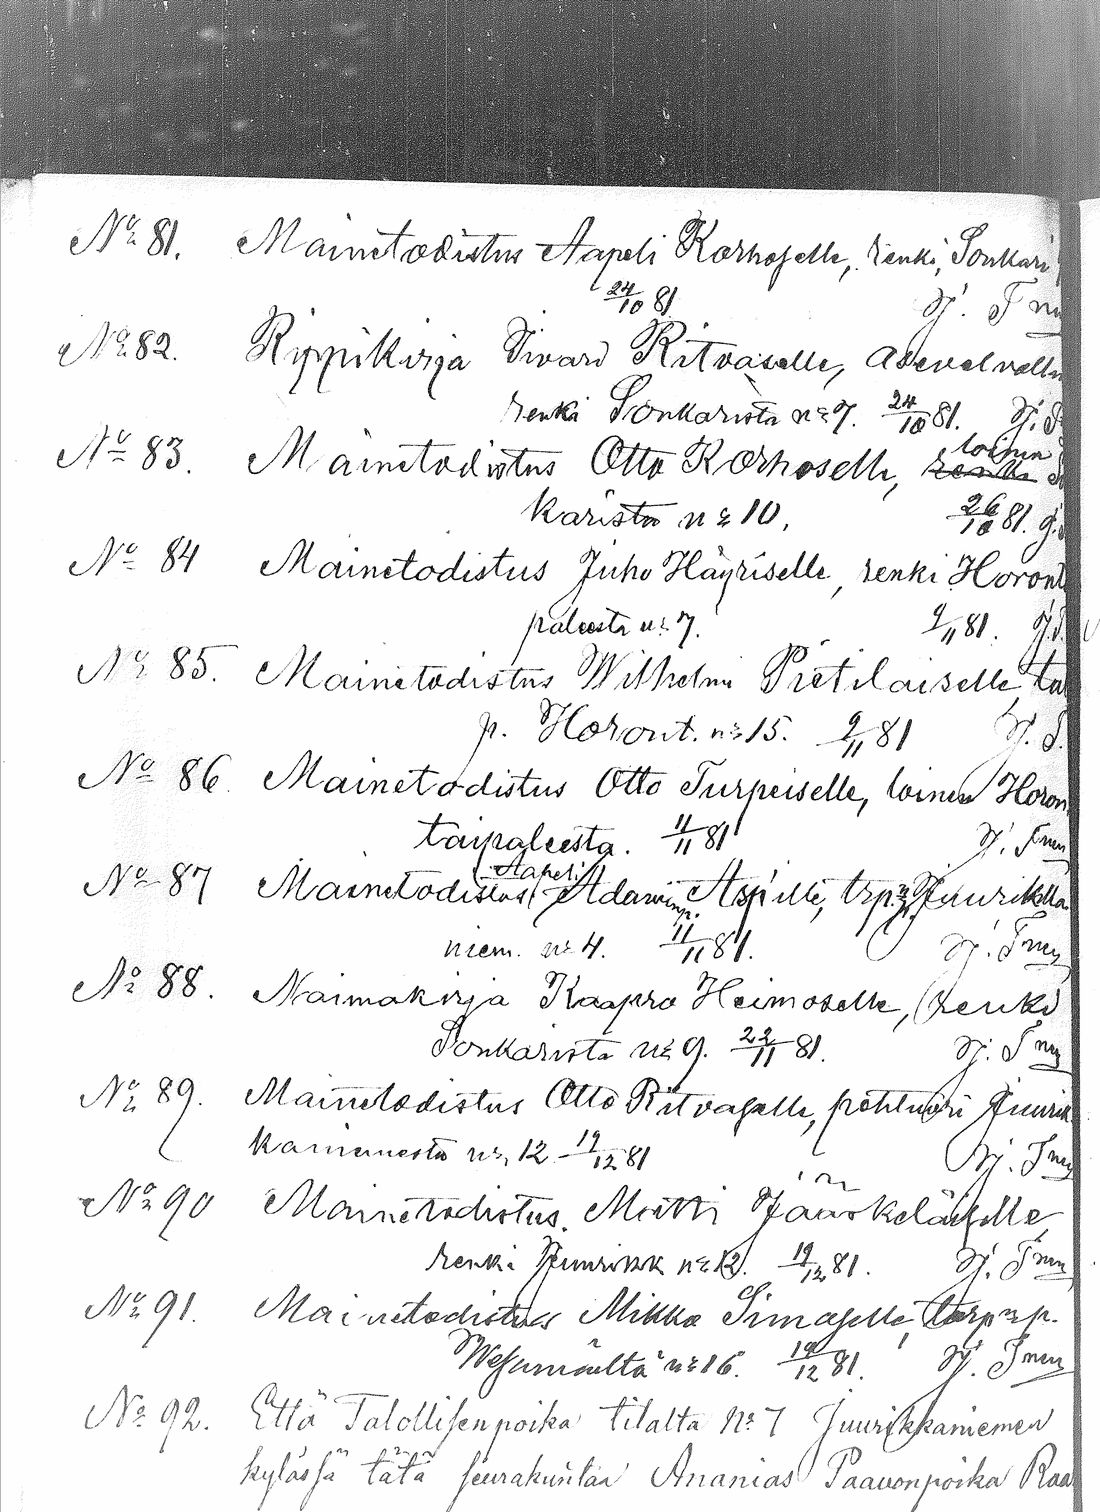 No 81. Mainetodistus Aapeli Korhoselle, renki, Sonkari
24/10 81 Hj. Tnen
No 82. Rippikirja Sivard Ritvaselle, asevelvolli
renki Sonkarista no 7. 24/10 81. Hj.
No 83. Mainetodistus Otto Korhoselle, renki loinen
karista no 10. 26/10 81.
No 84 Mainetodistus Juho Häyriselle, renki Horont
paleesta no 7. 9/11 81. Hj.
No 85. Mainetodistus Wilhelmi Pietilaiselle, tal
p. Horont. no 15. 9/11 81 Hj.
No 86. Mainetodistus Otto Turpeiselle, loinen Horon
taipaleesta. 11/11 81 Hj. Tnen
No 87 Mainetodistus (Aapeli) Adaminp. Aspille, trp. Juurikka
niem. no 4. 11/11 81. Hj. Tnen
No 88. Naimakirja Kaapro Heimoselle, (renki
Sonkarista no 9. 22/11 81. Hj. Tnen
No 89. Mainetodistus Otto Ritvaselle, pehtuori Juurik
kaniemestä no 12 19/12 81 Hj. Tnen
No 90 Mainetodistus. Matti Jääskeläiselle
renki Juurikk no 12. 19/12 81. Hj. Tnen
No 91. Mainetodistus Mikko Simaselle, torp. p.
Wesamäeltä no 16. 19/12 81. Hj. Tnen
No 92. Että Talollisenpoika tilalta No 7 Juurikkaniemen
kylässä tätä seurakuntaa Ananias Paavonpoika Raa